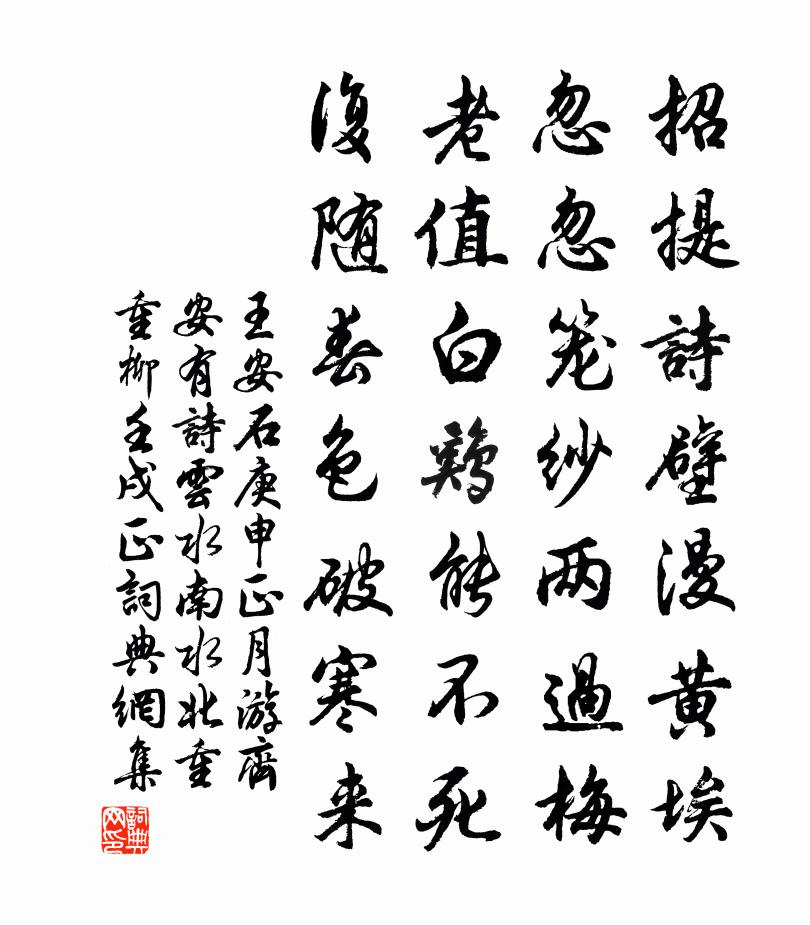 招提詩壁漫黄埃
忽忽笼紗两過梅
老值白鷄能不死
復随春色破寒来
王安石庚申正月游齊
安有詩雲水南水北重
重柳壬戌正詞典網集
詞典
网印